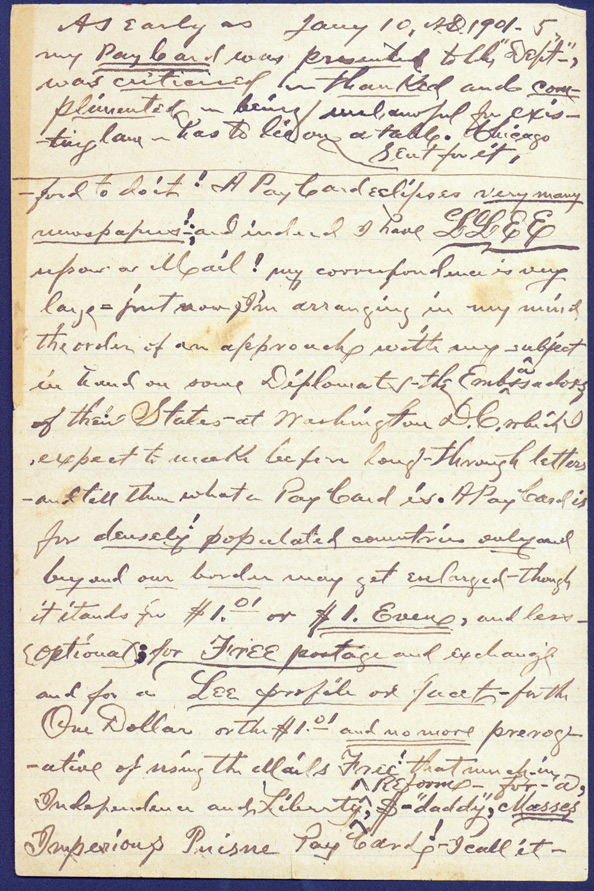 As early as Jany 10, A.D. 1901. 5
my Pay Card was presented to the "Dept",
was criticised in thanked and com-
plimented, in being unlawful for exis-
ting law has to lie on a table. Chicago
Sent for it,
-ford to do it! A Pay Card eclipses very many
newspapers!; and indeed I have LLEE
upon a Mail! my correspondence is very
large = just now, I'm arranging in my mind
the order of an approach with my subject
in hand on some Diplomats - the Embassadors
of their States - at Washington D.C. which I
expect to make before long - through letters
- and tell them what a Pay Card is. A Pay Card is
for densely populated countries only and
beyond our border may get enlarged - though
it stands for $1.01 or $1. Even, and less -
(optional); for FREE postage and exchange
and for a LEE profile or facet - for the
One Dollar or the $1.01 and no more prerog-
-ative of using the Mails Free! that run in
Reform - for - a,
Independence and Liberty, "daddy", Masses
Imperious Puisne Pay Card! - I call it -